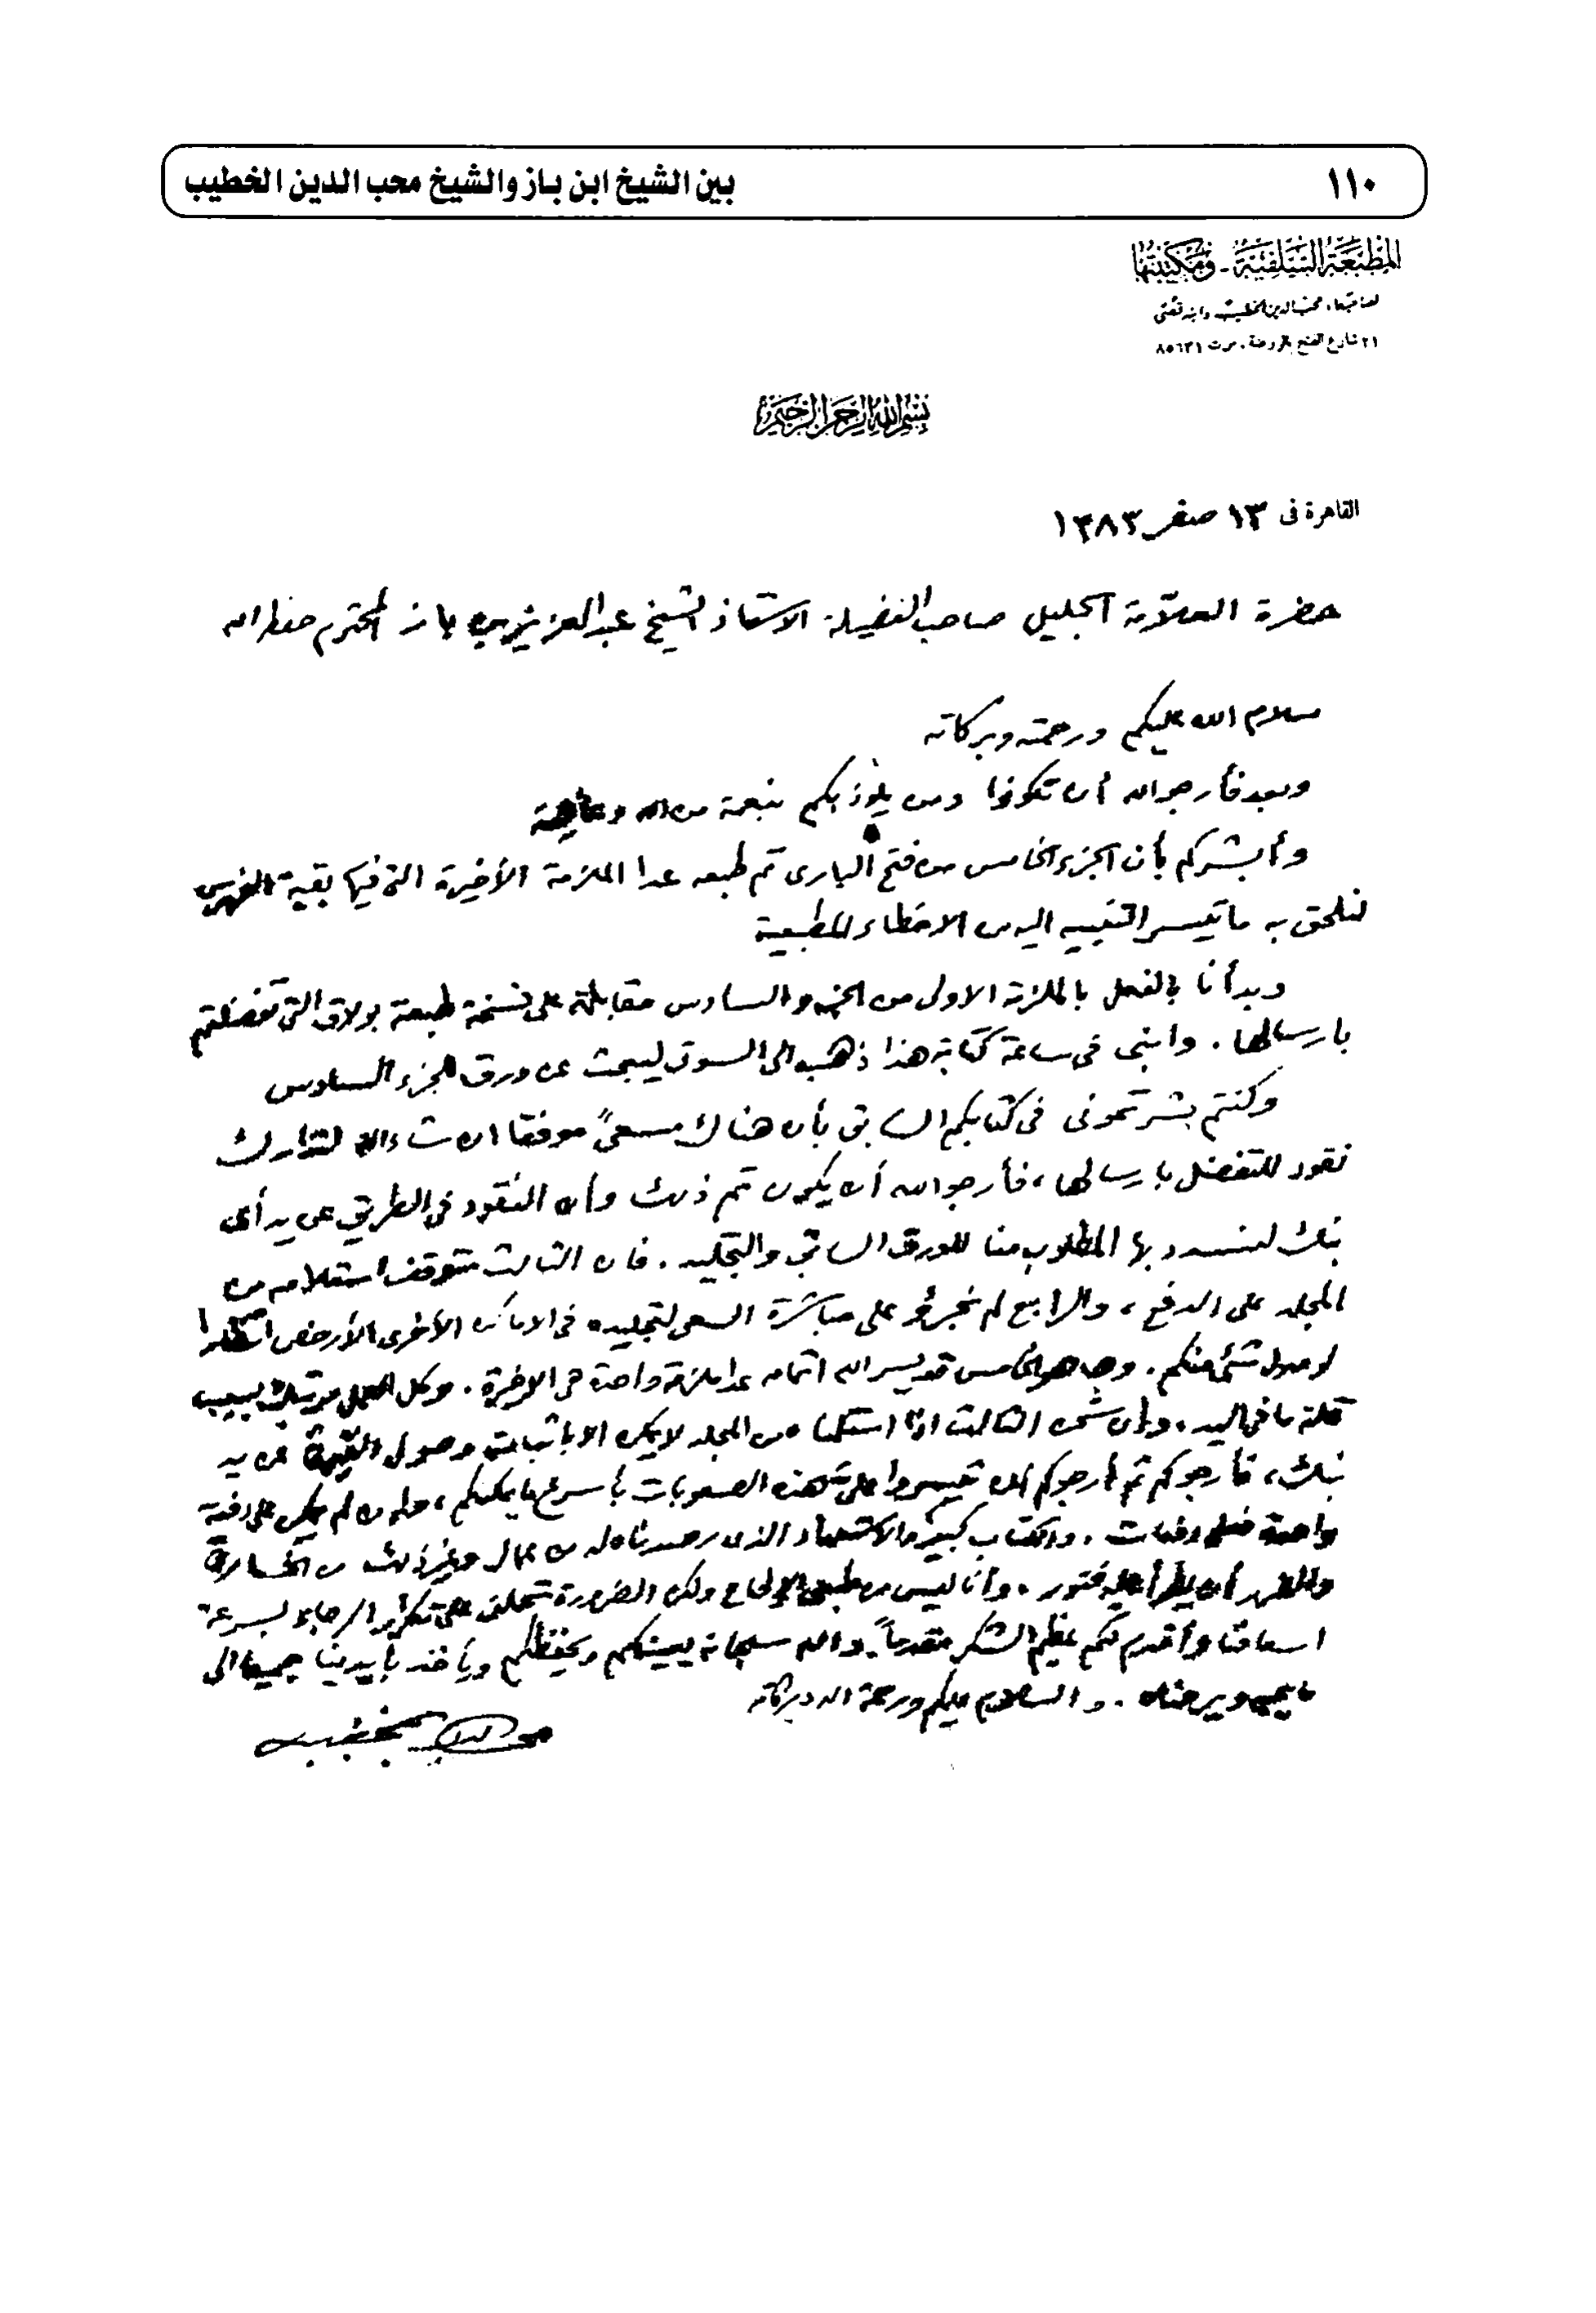 ١١٠
بين الشيخ ابن باز والشيخ محب الدين الخطيب
المطبعة السلفية - ومكتبتها
لصاحبها: محب الدين الخطيب وابنه قصى
٢١ شارع الفتح بالروضة، ت ٨٥٦٣١
بسم الله الرحمن الرحيم
القاهرة فى ١٣ صفر ١٣٨٣
حضرة العلامة الجليل صاحب الفضيلة الاستاذ الشيخ عبد العزيز بن باز المحترم حفظه الله
سلام الله عليكم ورحمته وبركاته
وبعد فأرجو الله أن تكونوا ومن يلوذ بكم بنعمة من الله وعافية
وأبشركم بأن الجزء الخامس من فتح البارى تم طبعه عدا الملزمة الأخيرة التى فيها بقية الفهرس
لنلحق به ما تيسر التنبيه اليه من الاخطاء المطبعية
وبدأنا بالفعل بالملزمة الاولى من الجزء السادس مقابلة على نسخة طبعة بولاق التى تفضلتم
بارسالها . وابنى فى ساعة كتابة هذا ذهب الى السوق ليبحث عن ورق للجزء السادس
وكنتم بشرتمونى فى كتابكم السابق بأن هناك مسعىً موفقا ان شاء الله لتدارك
نقود للتفضل بارسالها ، فأرجو الله أن يكون تم ذلك وأن النقود فى الطريق على يد أى
بنك لنسدد بها المطلوب منا للورق السابق والتجليد . فان الثالث متوقف استلامه من
المجلد على الدفع ، والرابع لم نجرؤ على مباشرة السعى لتجليده فى الاماكن الأخرى الأرخص انتظارا
لوصول شئ منكم . وها هو الخامس قد يسر الله اتمامه عدا ملزمة واحدة هى الاخيرة . وكل العمل مرتبك بسبب
قلة ما فى اليد . وان شحن الثالث اذا استلمناه من المجلد لا يمكن الا باثبات وصول القيمة عن يد
بنك ، فأرجوكم ثم أرجوكم أن تيسروا على هذه الصعوبات بأسرع ما يمكنكم ، وان لم يمكن على دفعة
واحدة فعلى دفعات . والكتاب كبير والاستعداد الذى رصدناه له من عمال وغير ذلك من الخسارة
والضرر أن يطرأ عليه فتور . وأنا ليس من طبعى الالحاح ولكن الضرورة تحملنى على تكرار الرجاء لسرعة
اسعافنا وأقدم لكم عظيم الشكر مقدماً . والله سبحانه يعينكم ويحفظكم ويأخذ بأيدينا جميعا الى
ما يحبه ويرضاه . والسلام عليكم ورحمة الله وبركاته
محب الدين الخطيب